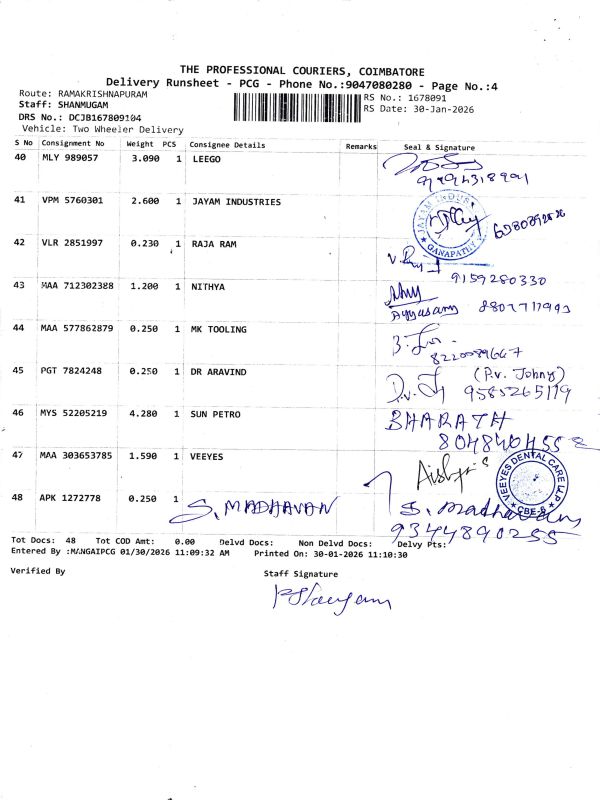 THE PROFESSIONAL COURIERS, COIMBATORE
Delivery Runsheet - PCG - Phone No.:9047080280 - Page No.:4
Route: RAMAKRISHNAPURAM
Staff: SHANMUGAM RS No.: 1678091
DRS No.: DCJB167809104 RS Date: 30-Jan-2026
Vehicle: Two Wheeler Delivery
S No Consignment No Weight PCS Consignee Details Remarks Seal & Signature
40 MLY 989057 3.090 1 LEEGO
41 VPM 5760301 2.600 1 JAYAM INDUSTRIES
GANAPATHY
42 VLR 2851997 0.230 1 RAJA RAM
9159280330
43 MAA 712302388 1.200 1 NITHYA
Ayyasamy
44 MK TOOLING MAA 577862879 0.250 1
45 PGT 7824248 0.250 1 DR ARAVIND (P.V. Johny)
9585265119
46 MYS 52205219 4.280 1 SUN PETRO BHARATH
8048404558
47 MAA 303653785 1.590 1 VEEYES
VEEYES DENTAL CARE LLP
CBE-6
48 APK 1272778 0.250 1 S. MADHAVAN S. Madhavan
9344890255
Tot Docs: 48 Tot COD Amt: 0.00 Delvd Docs: Non Delvd Docs: Delvy Pts:
Entered By :MANGAIPCG 01/30/2026 11:09:32 AM Printed On: 30-01-2026 11:10:30
Verified By Staff Signature